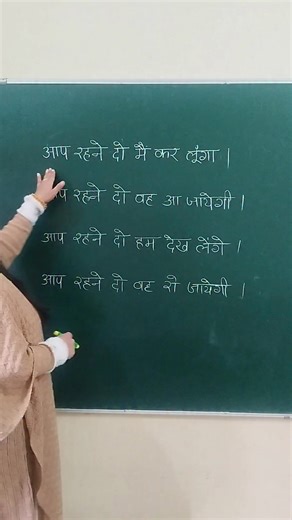 आप रहने दो मै कर लूंगा ।
आप रहने दो वह आ जायेगी ।
आप रहने दो हम देख लेंगे ।
आप रहने दो वह सो जायेगी ।